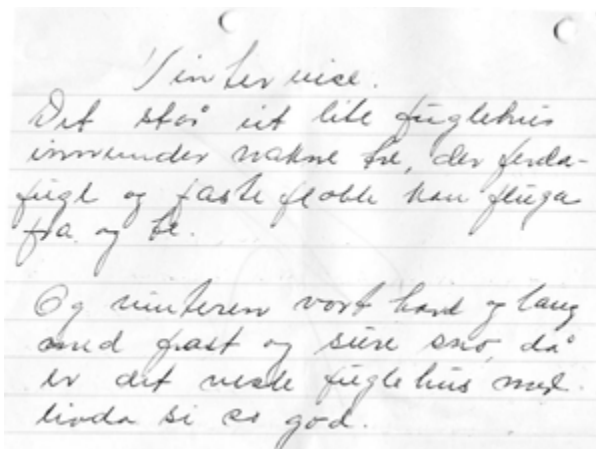 Vintervise.
Det står eit lite fuglehus
innunder nakne tre, der ferda-
fugl og faste flokk kan fluga
fra og te.
Og vinteren vort hard og lang
med frost og sure snø, då
er det vesle fuglehus med
livda si så god.